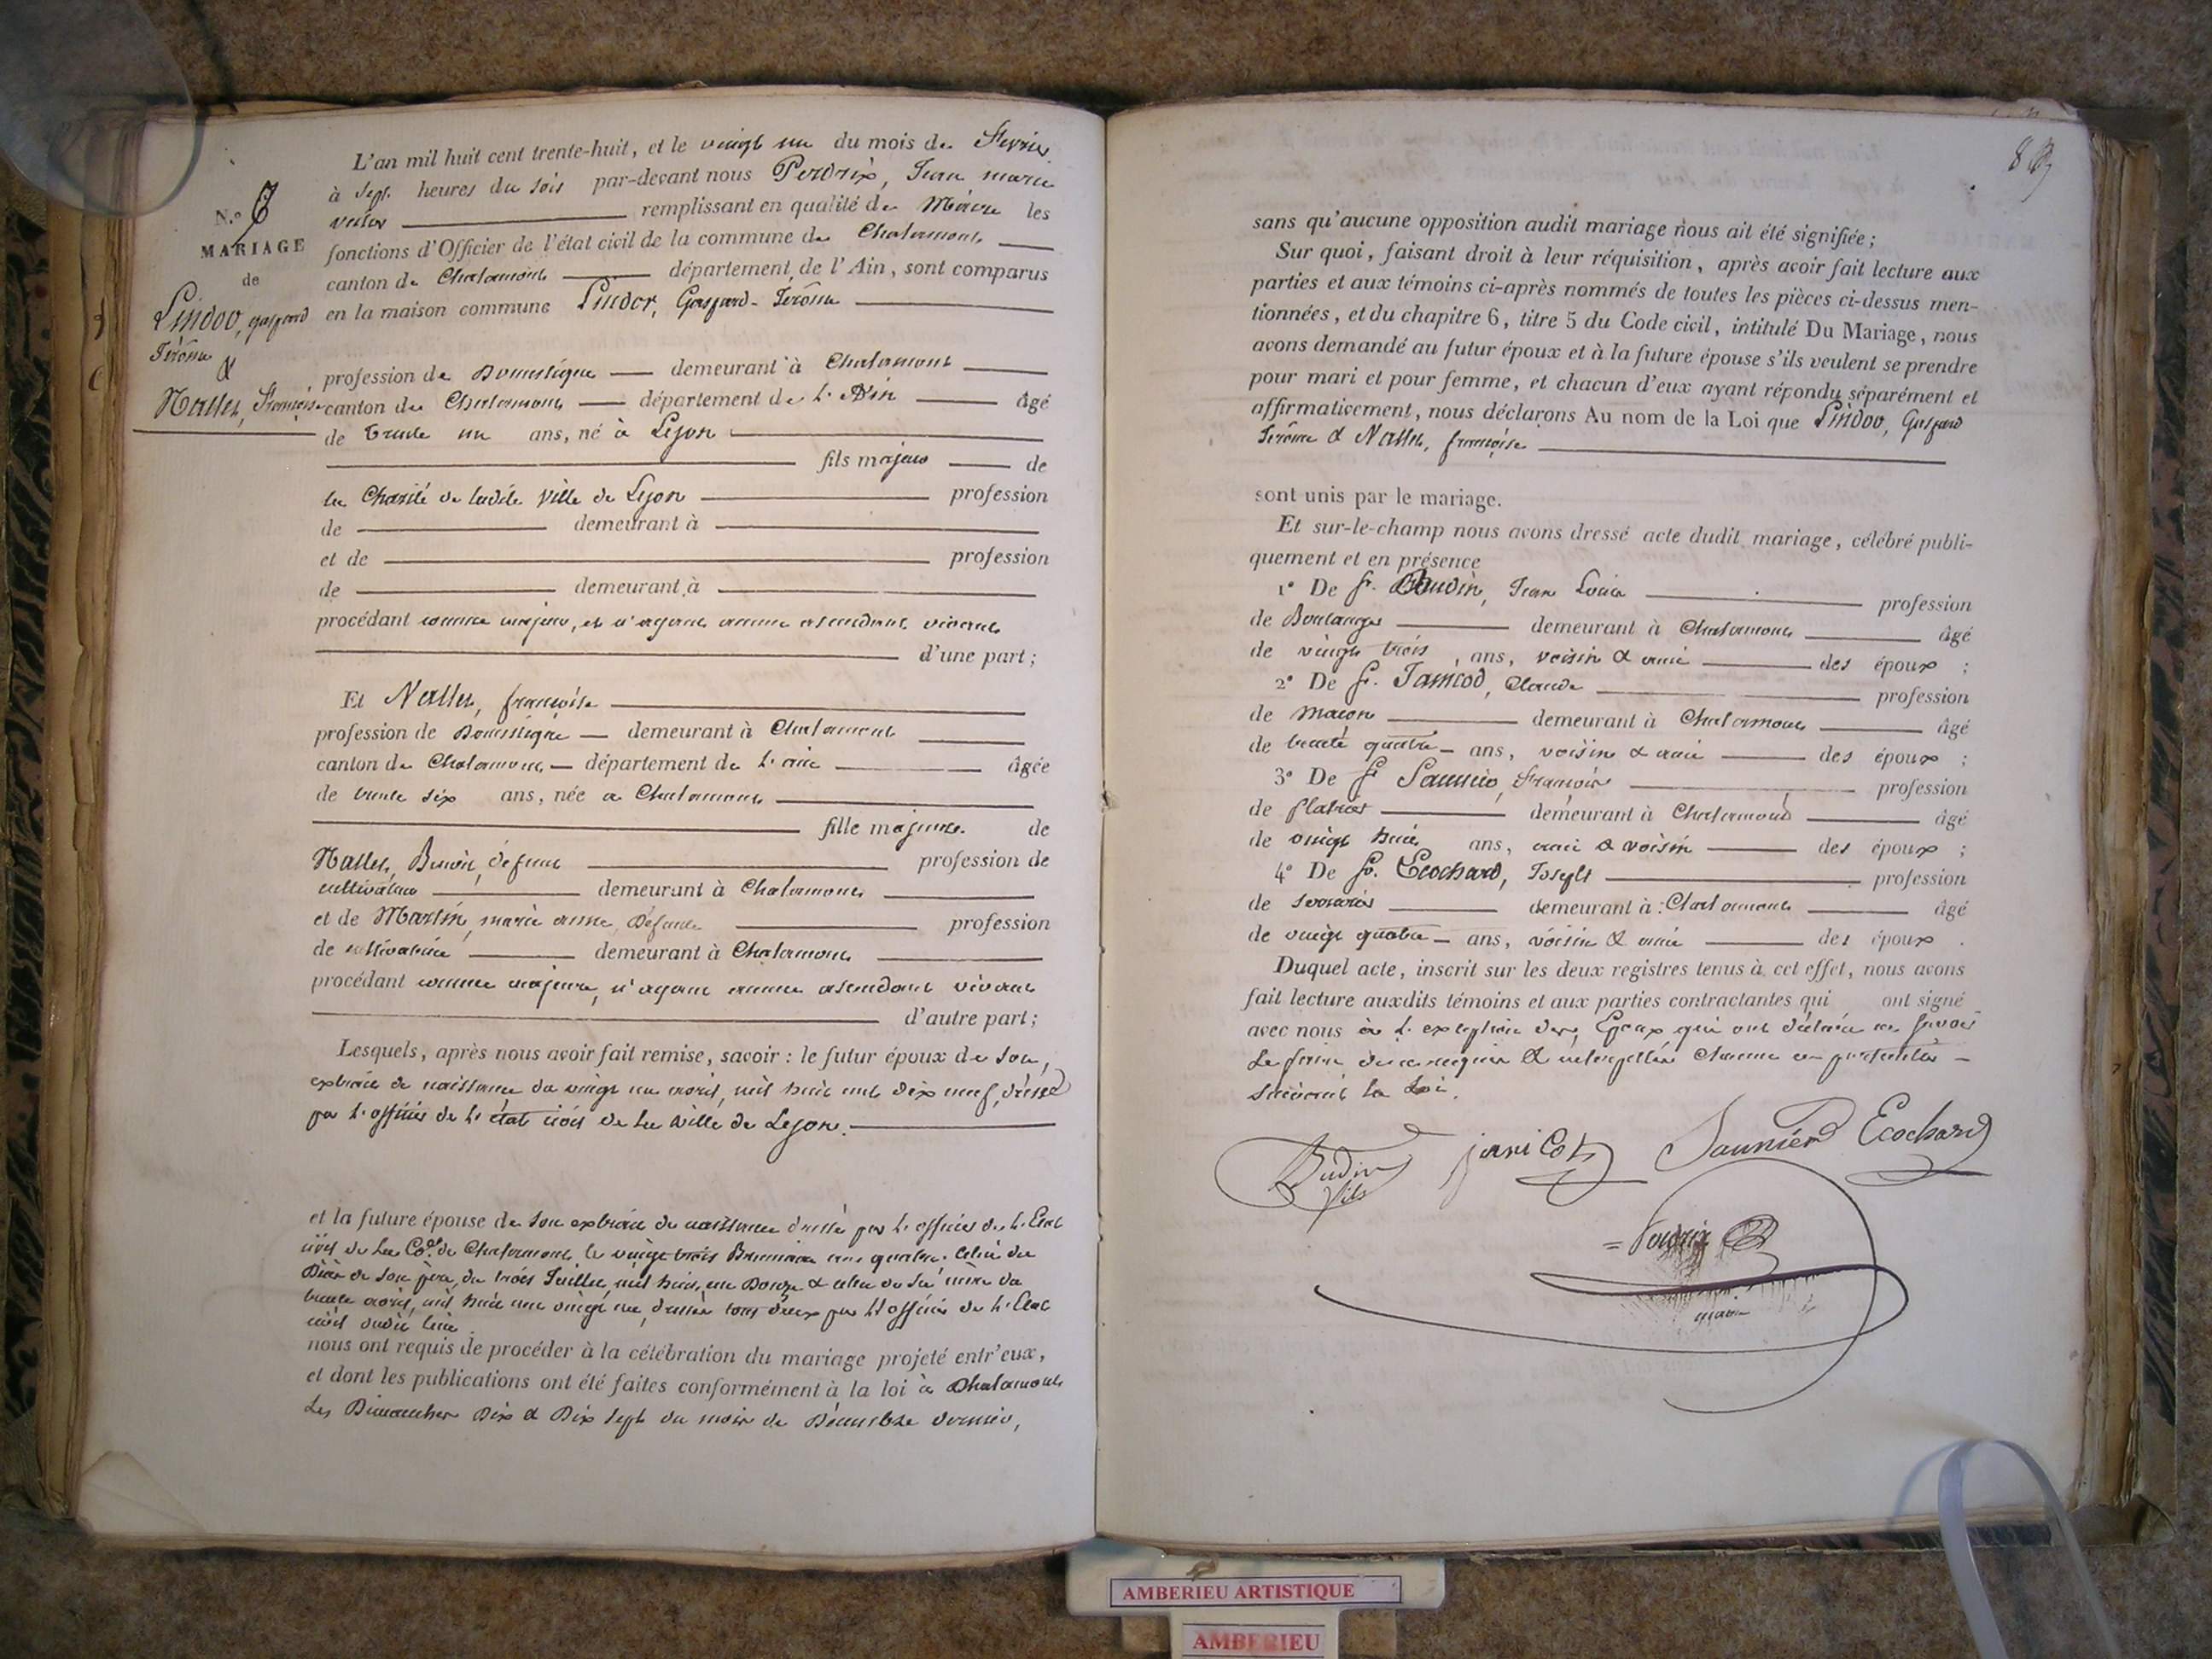 L'an mil huit cent trente-huit, et le vingt un du mois de fevrier
à sept heures du soir par-devant nous Perdrix, Jean marie
remplissant en qualité de Maire les
fonctions d'Officier de l'état civil de la commune de Chalamont
canton de Chalamont département de l'Ain, sont comparus
en la maison commune Lindor, Gaspard-Jerôme
N.o 6
MARIAGE
de
Lindor, gaspard
Jerôme
&
Nallet, françoise
profession de Domestique demeurant à Chalamont
canton de Chalamont département de l'Ain âgé
de trente un ans, né à Lyon
fils majeur de
la Charité de ladite Ville de Lyon profession
de demeurant à
et de profession
de demeurant à
procédant comme majeur, et n'ayant aucun ascendant vivant
d'une part;
Et Nallet, françoise
profession de Domestique demeurant à Chalamont
canton de Chalamont département de l'ain âgée
de trente six ans, née à Chalamont
fille majeure de
Nallet, Benoit, défunt profession de
cultivateur demeurant à Chalamont
et de Martin, marie anne, Défunte profession
de cultivatrice demeurant à Chalamont
procédant comme majeure, n'ayant aucun ascendant vivant
d'autre part;
Lesquels, après nous avoir fait remise, savoir: le futur époux de son
extrait de naissance du vingt un avril, mil huit cent dix neuf, dressé
par l'officier de l'état civil de la Ville de Lyon.
et la future épouse de son extrait de naissance dressé par l'officier de l'Etat
civil de la Co.ne de Chalamont le vingt trois Brumaire an quatre. Celui du
Décès de son père, du trois Juillet, mil huit cent Douze & celui de sa mère du
trente avril, mil huit cent vingt un, dressés tous deux par l'officier de l'Etat
civil dudit lieu
nous ont requis de procéder à la célébration du mariage projeté entr'eux,
et dont les publications ont été faites conformément à la loi à Chalamont
Les Dimanches Dix & Dix sept du mois de Décembre dernier,
sans qu'aucune opposition audit mariage nous ait été signifiée;
Sur quoi, faisant droit à leur réquisition, après avoir fait lecture aux
parties et aux témoins ci-après nommés de toutes les pièces ci-dessus men-
tionnées, et du chapitre 6, titre 5 du Code civil, intitulé Du Mariage, nous
avons demandé au futur époux et à la future épouse s'ils veulent se prendre
pour mari et pour femme, et chacun d'eux ayant répondu séparément et
affirmativement, nous déclarons Au nom de la Loi que Lindor, Gaspard
Jerôme & Nallet, françoise
sont unis par le mariage.
Et sur-le-champ nous avons dressé acte dudit mariage, célébré publi-
quement et en présence
1o De Sr. Baudin, Jean Louis profession
de Boulanger demeurant à Chalamont âgé
de vingt trois ans, voisin & ami des époux;
2o De Sr. Janicod, Claude profession
de maçon demeurant à Chalamont âgé
de trente quatre ans, voisin & ami des époux;
3o De Sr Saunier, François profession
de platrier demeurant à Chalamont âgé
de vingt huit ans, ami & voisin des époux;
4o De Sr. Ecochard, Joseph profession
de serrurier demeurant à Chalamont âgé
de vingt quatre ans, voisin & ami des époux.
Duquel acte, inscrit sur les deux registres tenus à cet effet, nous avons
fait lecture auxdits témoins et aux parties contractantes qui ont signé
avec nous à l'exception des Epoux qui ont déclaré ne savoir
Le faire de ce requis & interpellés
suivant la Loi.
Budin fils janicot Saunier Ecochard
Perdrix
maire
AMBERIEU ARTISTIQUE
AMBERIEU